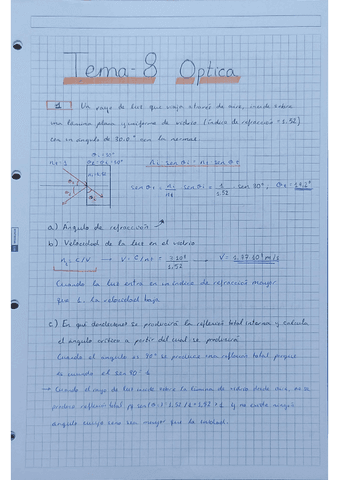 Tema-8 Optica
1. Un rayo de luz que viaja a través de aire, incide sobre
una lámina plana y uniforme de vidrio (índice de refracción = 1.52)
con un ángulo de 30.0° con la normal.
n₁ = 1
n₁ sen θ₁ = n₂ sen θ₂
a) Ángulo de refracción
b) Velocidad de la luz en el vidrio
n₂ = C/V → V = C/n₂ = 3·10⁸/1.52 → V = 1.97·10⁸ m/s
Cuando la luz entra en un índice de refracción mayor
que 1, la velocidad baja
c) En qué se producirá la reflexión total interna y calcula
el ángulo crítico a partir del cual se producirá
Cuando el ángulo es 90° se produce una reflexión total porque
es cuando el sen 90° = 1
→ Cuando el rayo de luz incide sobre la lámina de vidrio desde aire, no se
produce reflexión total y no existe ningún
ángulo cuyo seno sea mayor que la unidad.